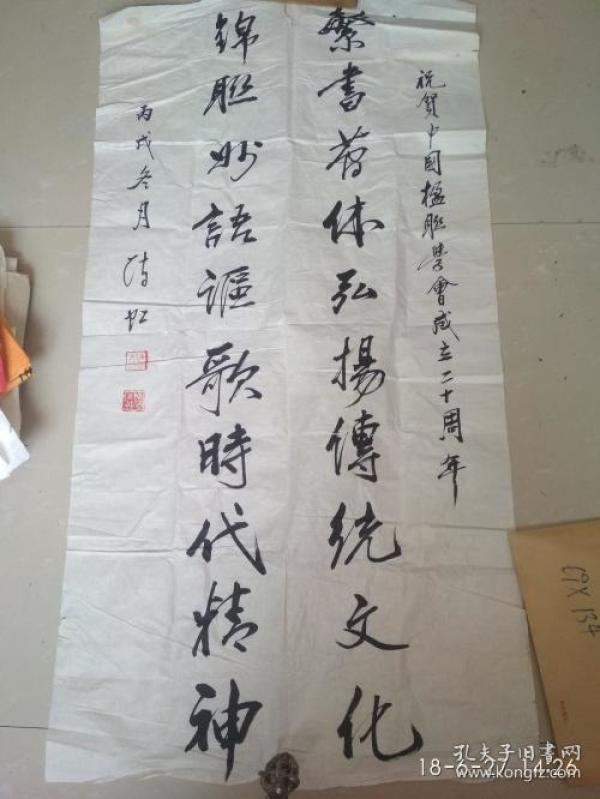 祝贺中国楹联学會成立二十周年
繁書舊体弘揚傳統文化
錦联妙語謳歌時代精神
丙戌冬月
69X134
孔夫子旧書网
www.kongfz.com
18-6-27 14:26